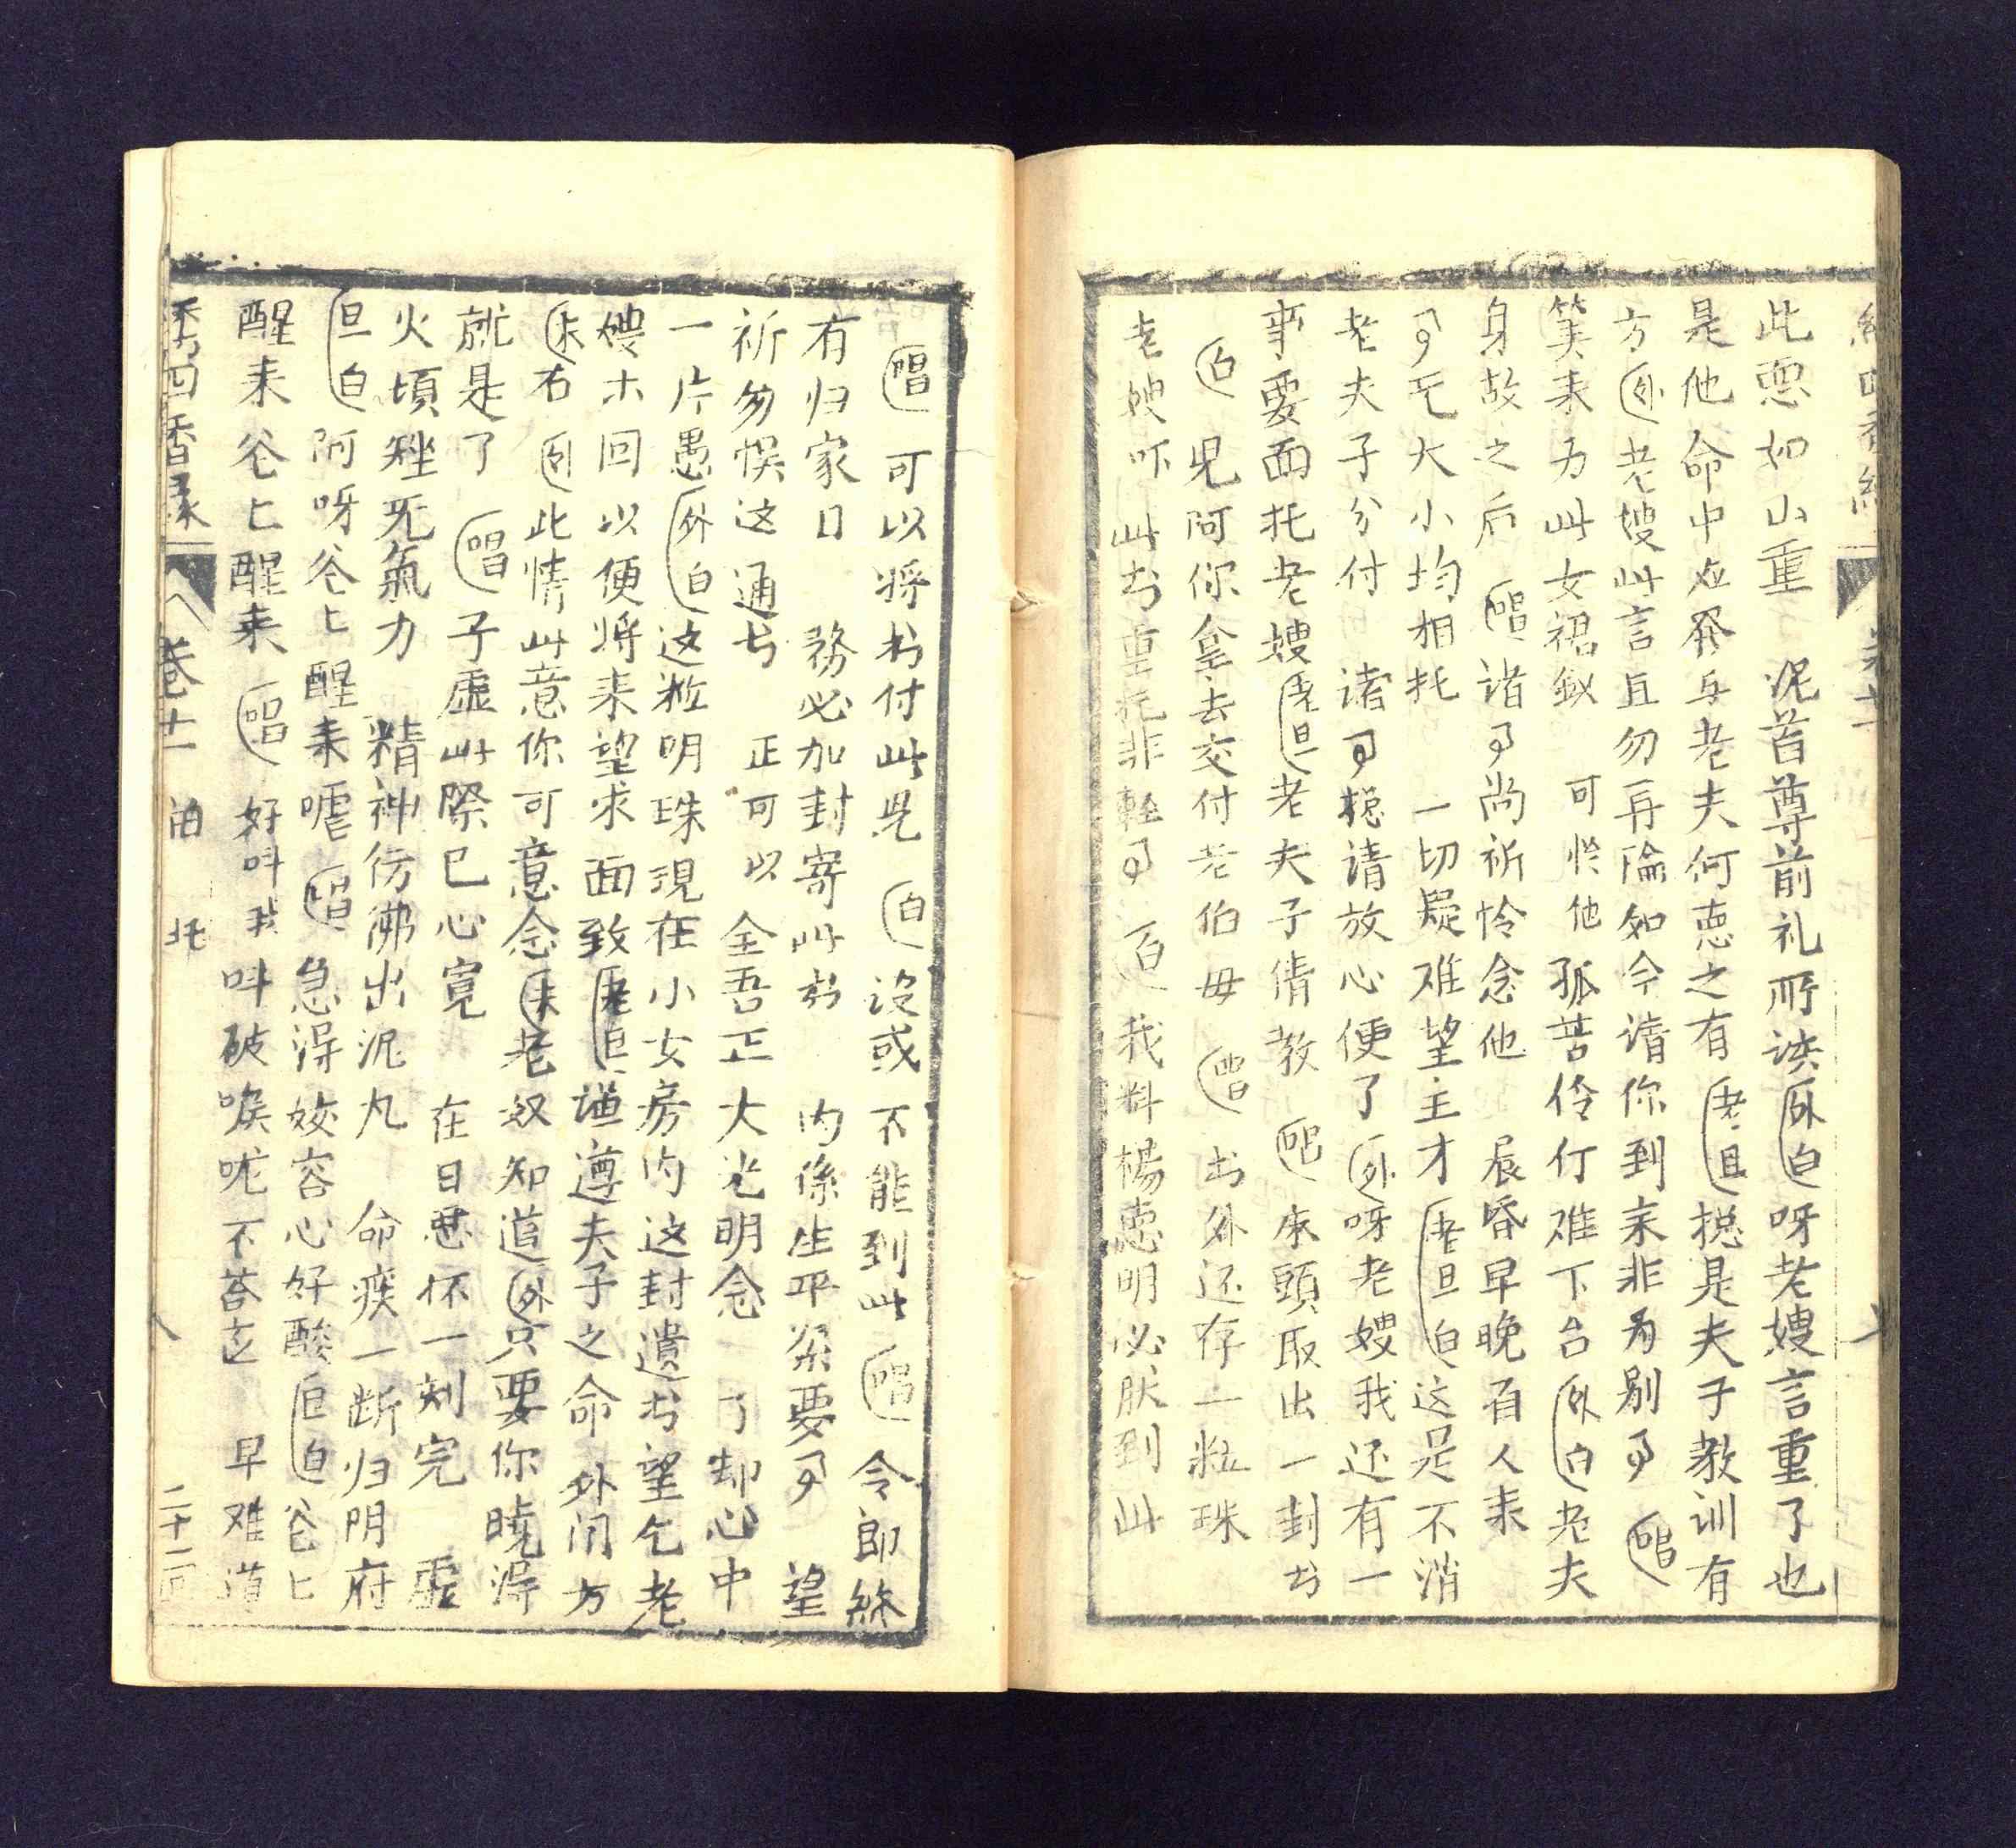 此恩如山重　泥首尊前礼所谈外白呀老嫂言重了也
是他命中应發与老夫何德之有老旦捴是夫子教训有
方外老嫂此言且勿再論如今请你到来非为别事唱
笑来为此女裙釵　可怜他孤苦伶仃难下台外白老夫
身故之后唱诸事尚祈怜念他　辰昏早晚有人来
事无大小均相托　一切疑难望主才老旦白这是不消
老夫子分付　诸事捴请放心便了外呀老嫂我还有一
事要面托老嫂老旦老夫子倩教唱床頭取出一封书
白兒阿你拿去交付老伯母唱书外还存一粒珠
老嫂吓此书重托非軽事白我料楊德明必朕到此
唱可以将书付此児白没或不能到此唱令郎終
有归家日　務必加封寄此书　内係生平紧要事　望
祈勿悮这通书　正可以全吾正大光明念　了却心中
一片愚外白这粒明珠現在小女房内这封遺书望乞老
嫂木回以便将来望求面致老旦谨遵夫子之命外门方
末右外此情此意你可意念末老奴知道外只要你曉淂
就是了唱子虚此際已心寛　在日思怀一刻完　虚
火頃䂳无氣力　精神彷彿出泥丸　命疾一断归阴府
旦白阿呀爸匕醒来嘘唱急淂姣容心好酸旦白爸匕
醒来爸匕醒来唱好叫我叫破喉咙不荅应　早难道
绣四香緣　卷十一　泊　托　二十二回